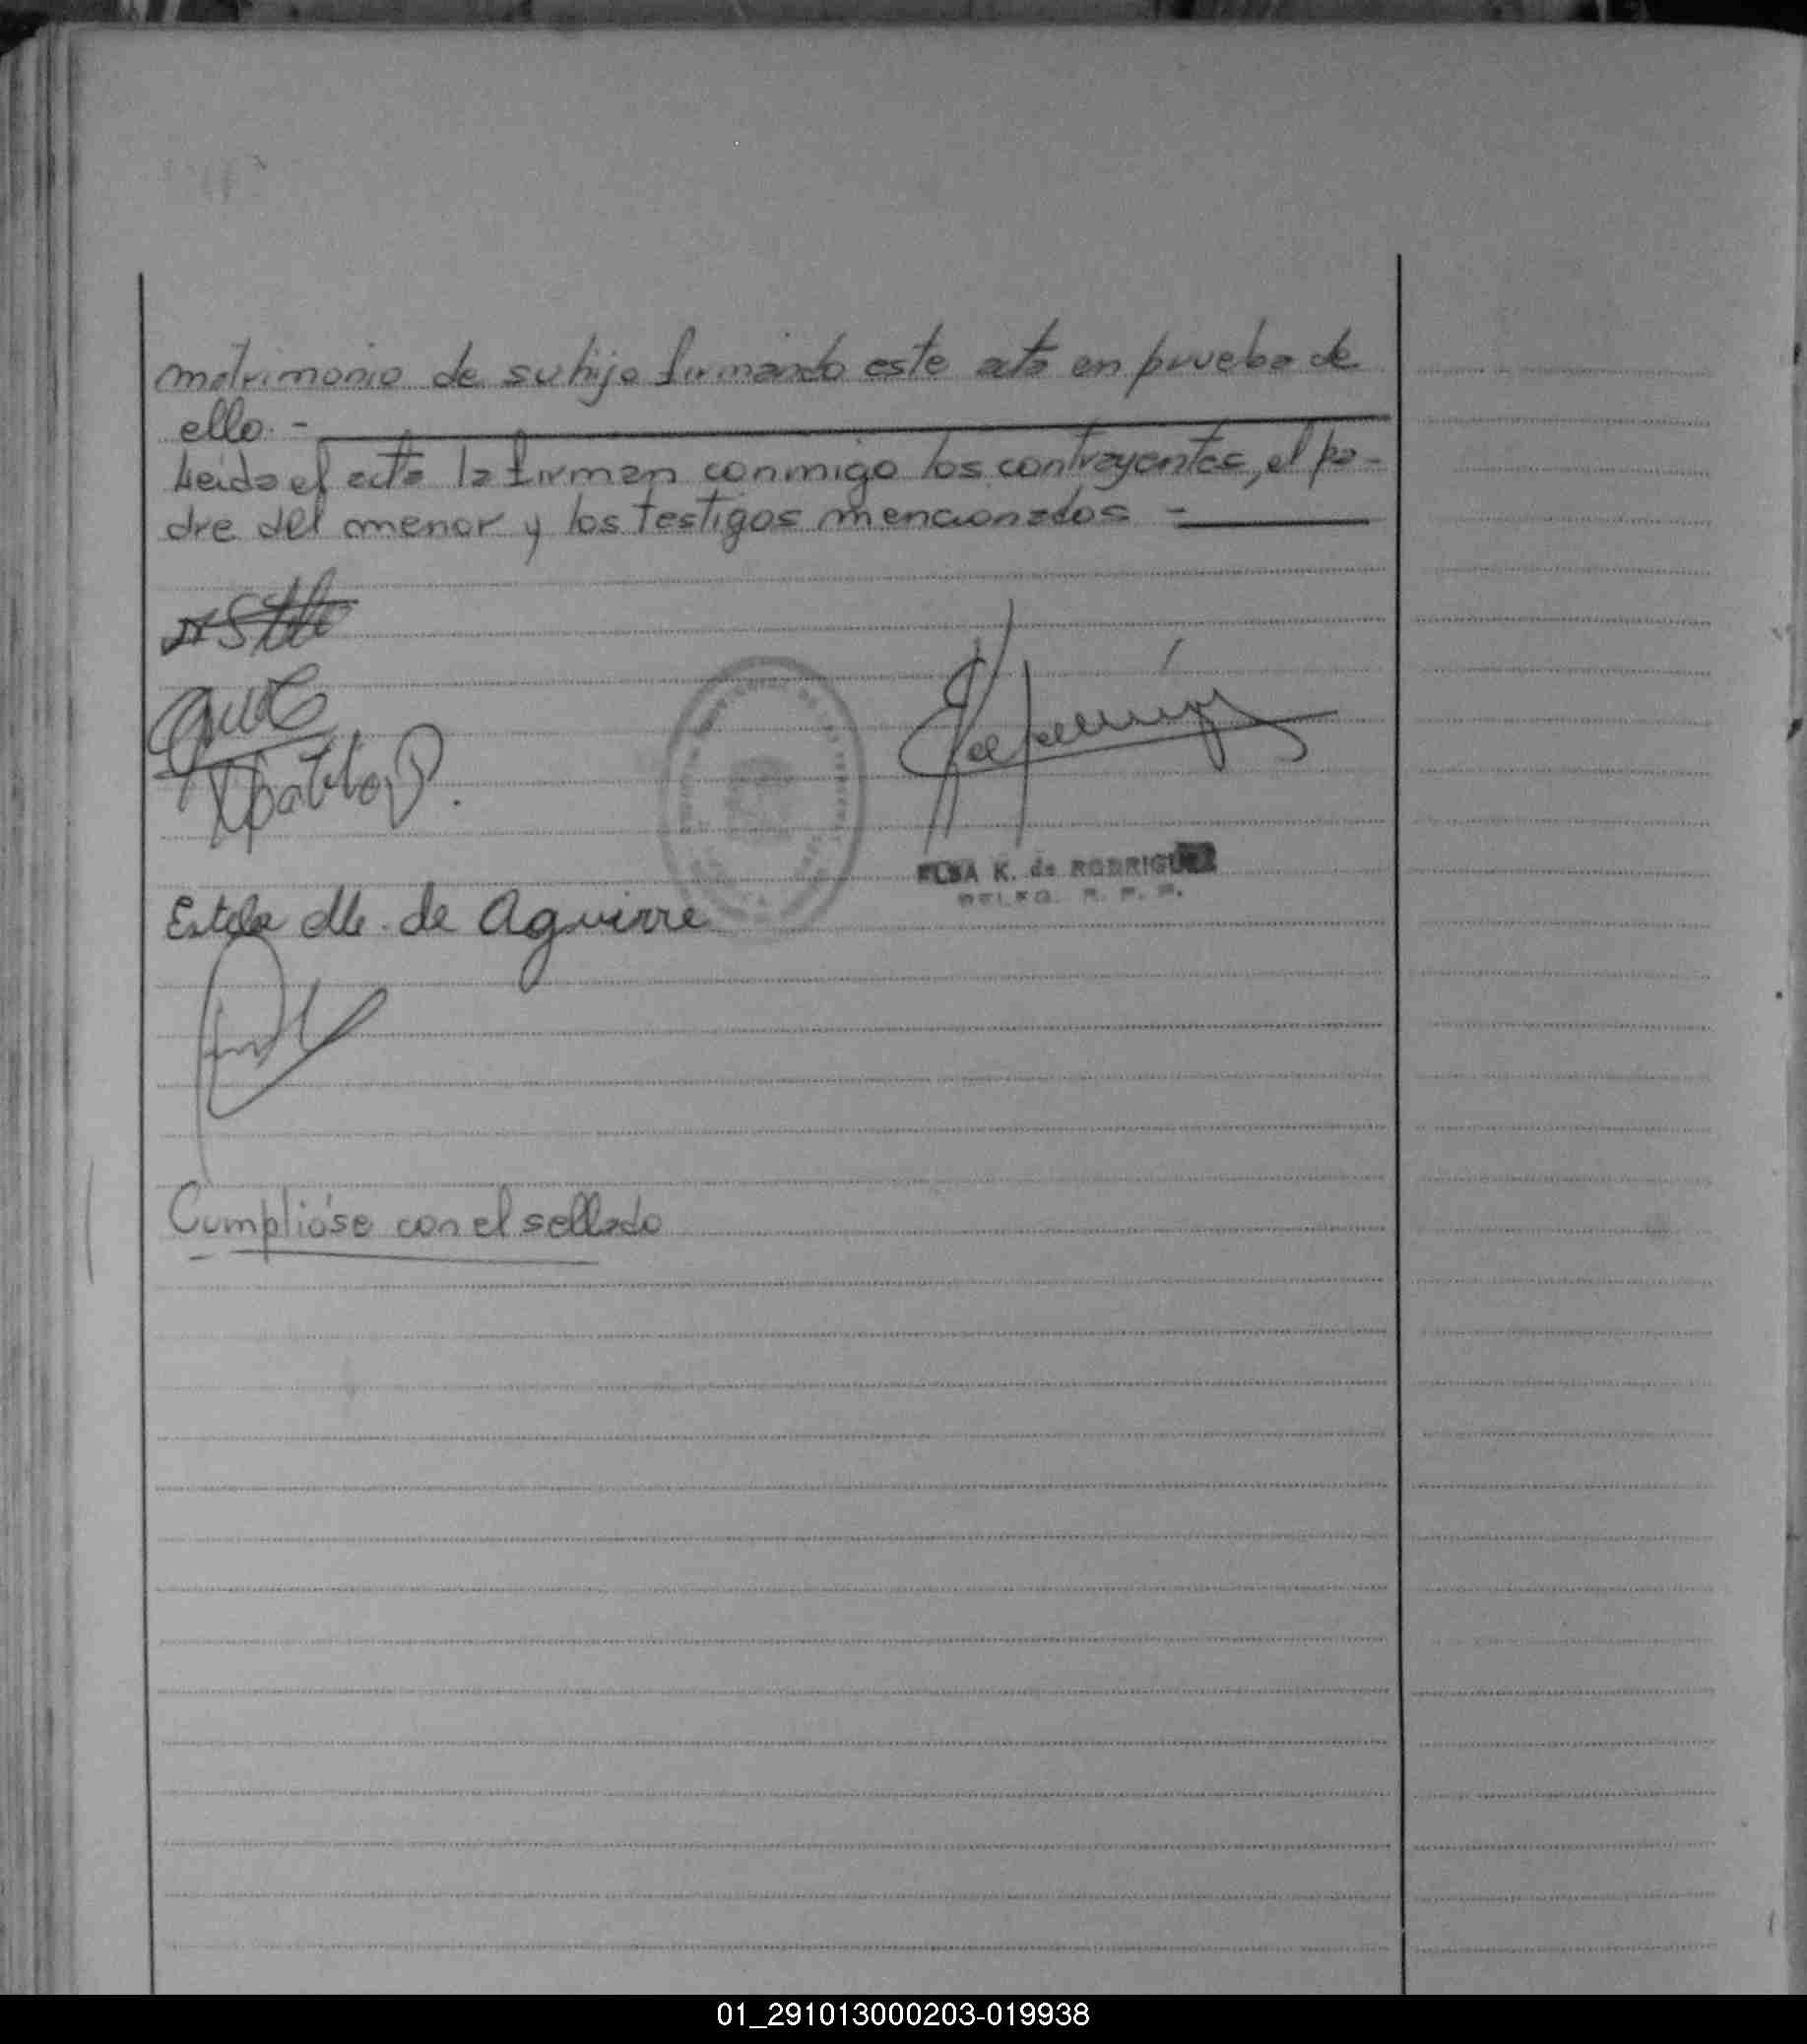 matrimonio de su hijo firmando este acta en prueba de
ello. -
Leida el acta la firman conmigo los contrayentes, el pa-
dre del menor y los testigos mencionados -
Estela M. de Aguirre
ELSA K. de RODRIGUEZ
DELEG. R. P. P.
Cumplióse con el sellado
01_291013000203-019938